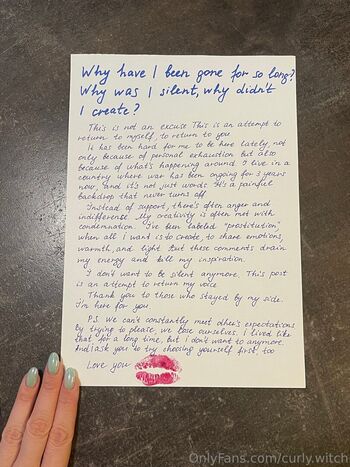 Why have I been gone for so long?
Why was I silent, why didn't
I create?
This is not an excuse This is an attempt to
return to myself, to return to you
It has been hard for me to be here lately, not
only because of personal exhaustion but also
because of what's happening around I live in a
country where war has been ongoing for 3 years
now, and it's not just words It's a painful
backdrop that never turns off
Instead of support, there's often anger and
indifference My creativity is often met with
condemnation I've been labeled "prostitution"
when all I want is to create, to share emotions,
warmth, and light But these comments drain
my energy and kill my inspiration.
I don't want to be silent anymore. This post
is an attempt to return my voice
Thank you to those who stayed by my side.
I'm here for you
P.S. We can't constantly meet other's expectations
by trying to please, we lose ourselves. I lived like
that for a long time, but I don't want to anymore.
And I ask you to try choosing yourself first, too
Love you
OnlyFans.com/curly.witch